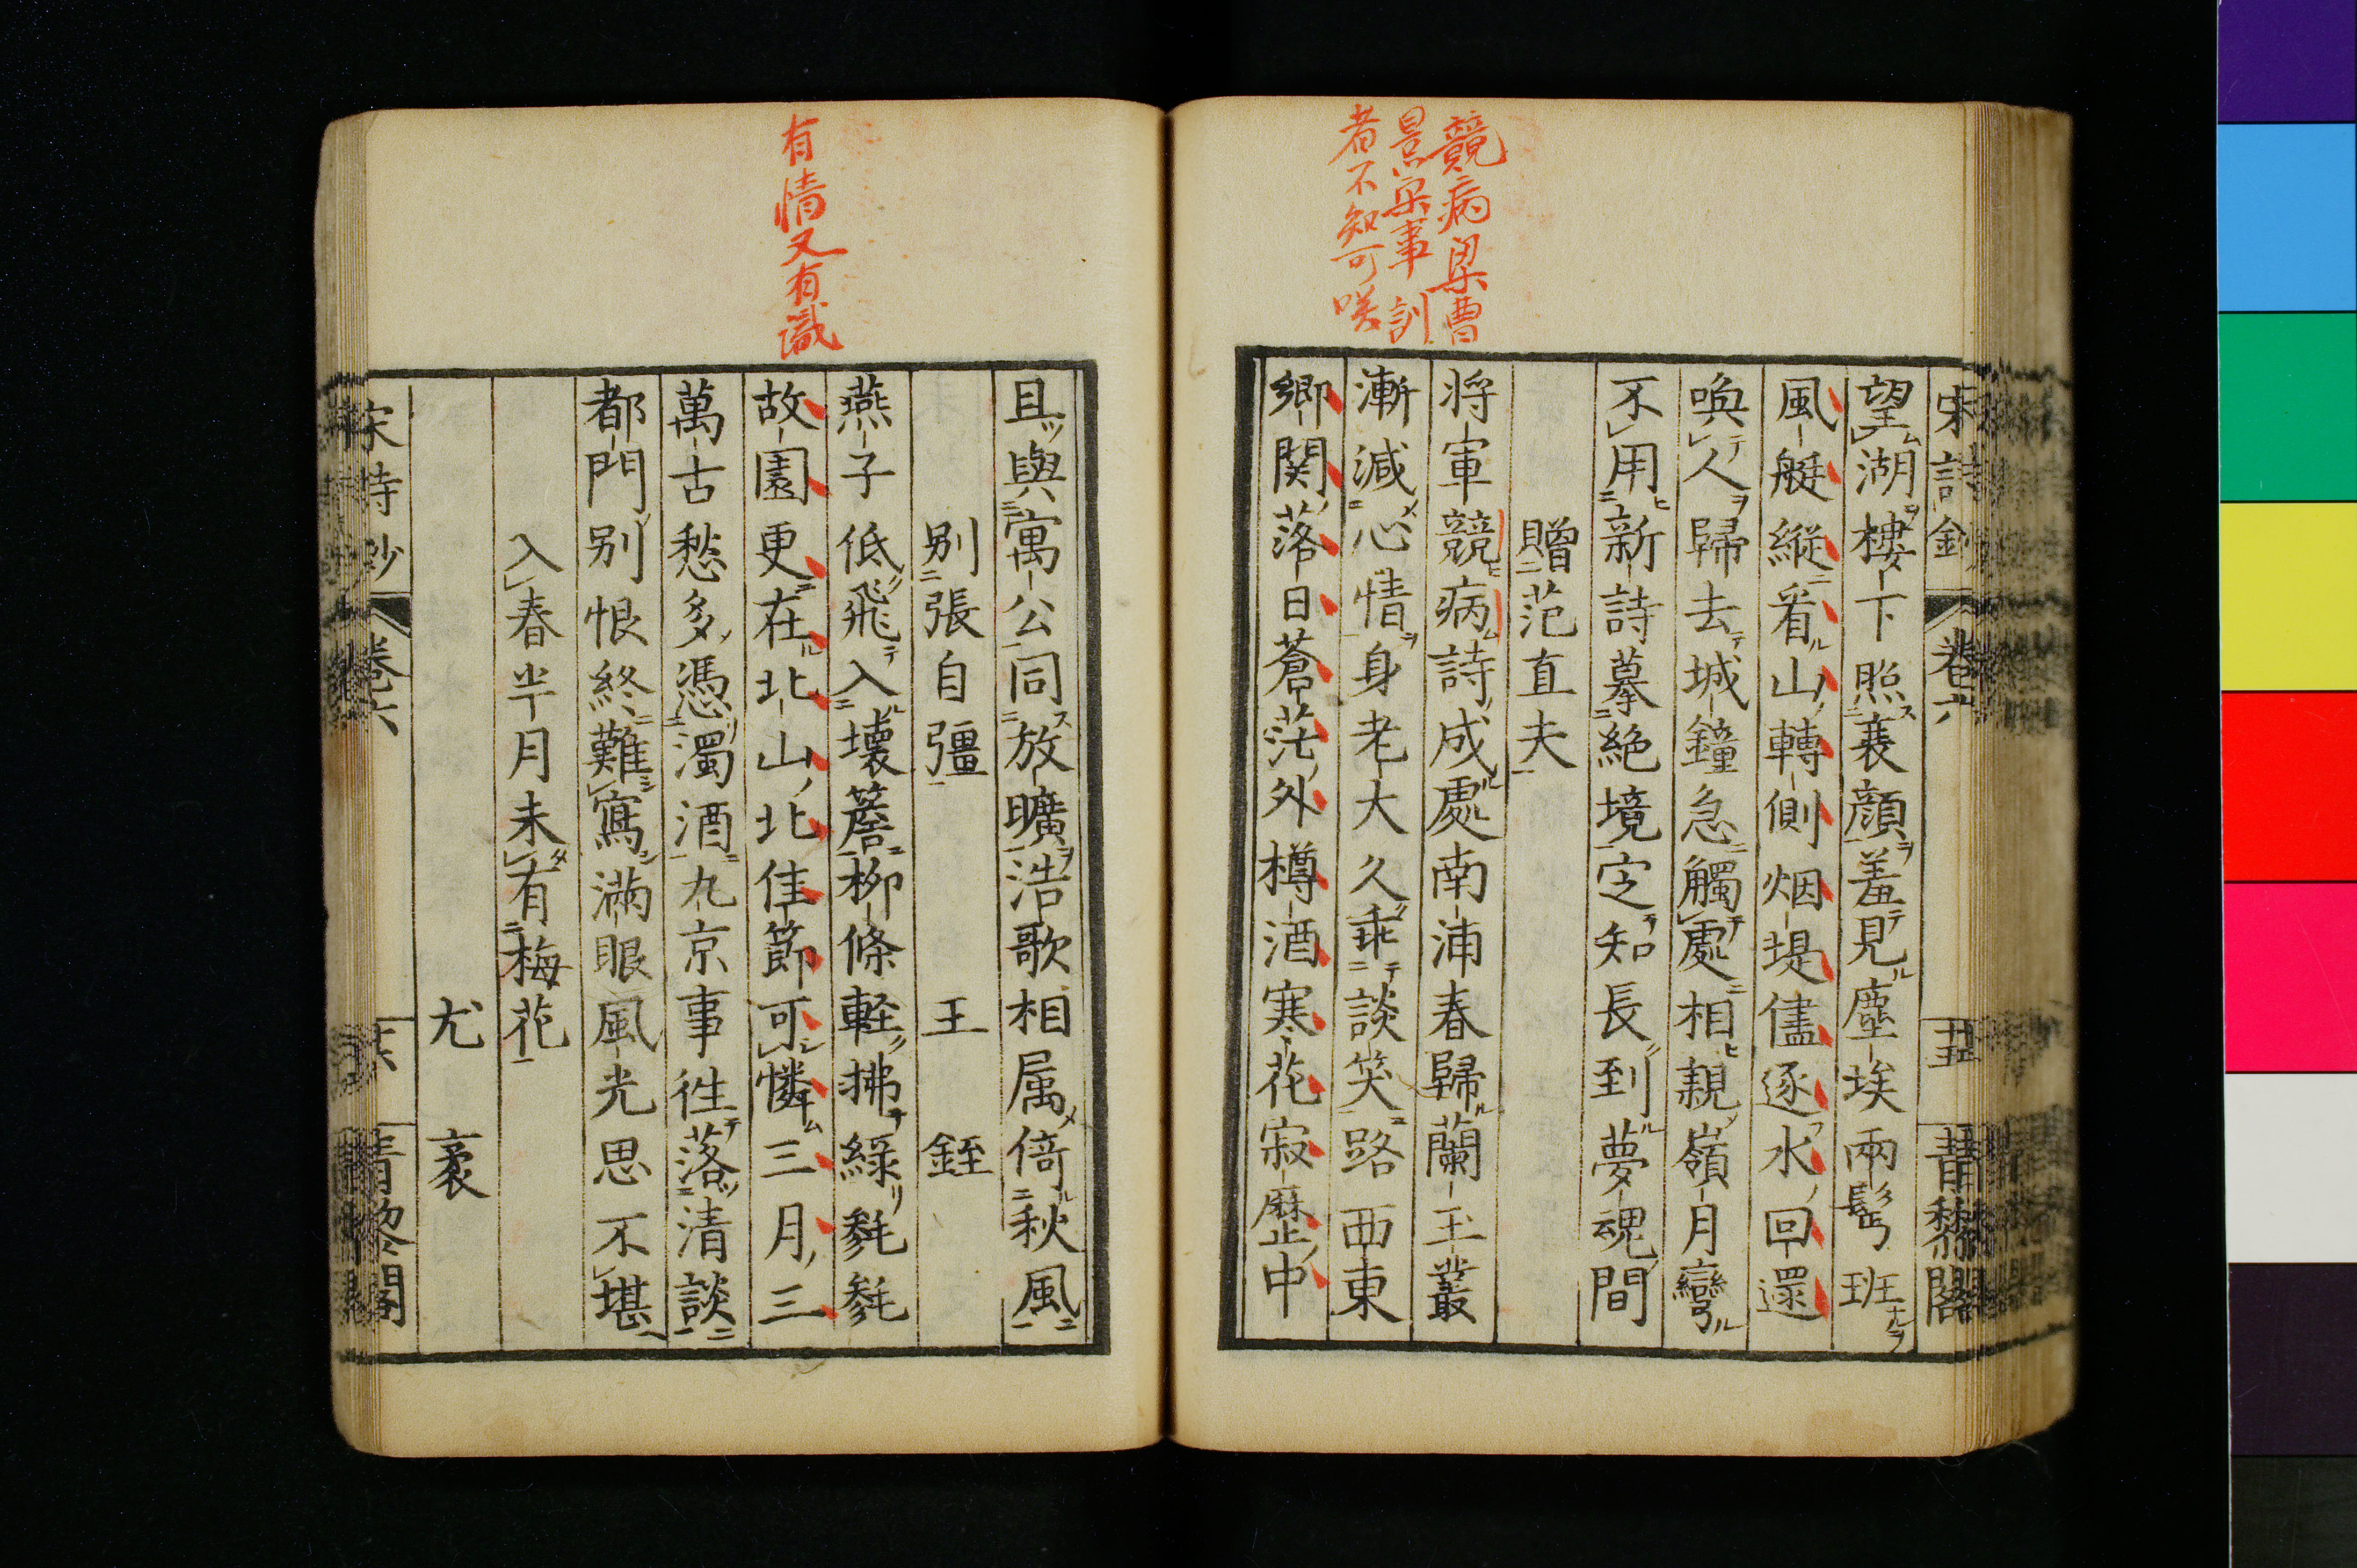 競病梁曹
景宗事訓
者不知可咲
宋詩鈔 卷六 廿五 青藜閣
望湖樓下照衰顔羞見塵埃兩鬂班
風艇縱看山轉側烟堤儘逐水回還
喚人歸去城鐘急觸處相親嶺月彎
不用新詩摹絶境定知長到夢魂間
贈范直夫
将軍競病詩成處南浦春歸蘭玉叢
漸減心情身老大久乖談笑路西東
鄉関落日蒼茫外樽酒寒花寂歷中
有情又有識
且與寓公同放曠浩歌相属倚秋風
别張自彊 王銍
燕子低飛入壊簷柳條軽拂緑毿毿
故園更在北山北佳節可憐三月三
萬古愁多憑濁酒九京事徃落清談
都門别恨終難寫滿眼風光思不堪
入春半月未有梅花
尤袤
宋詩鈔 卷六 青黎閣